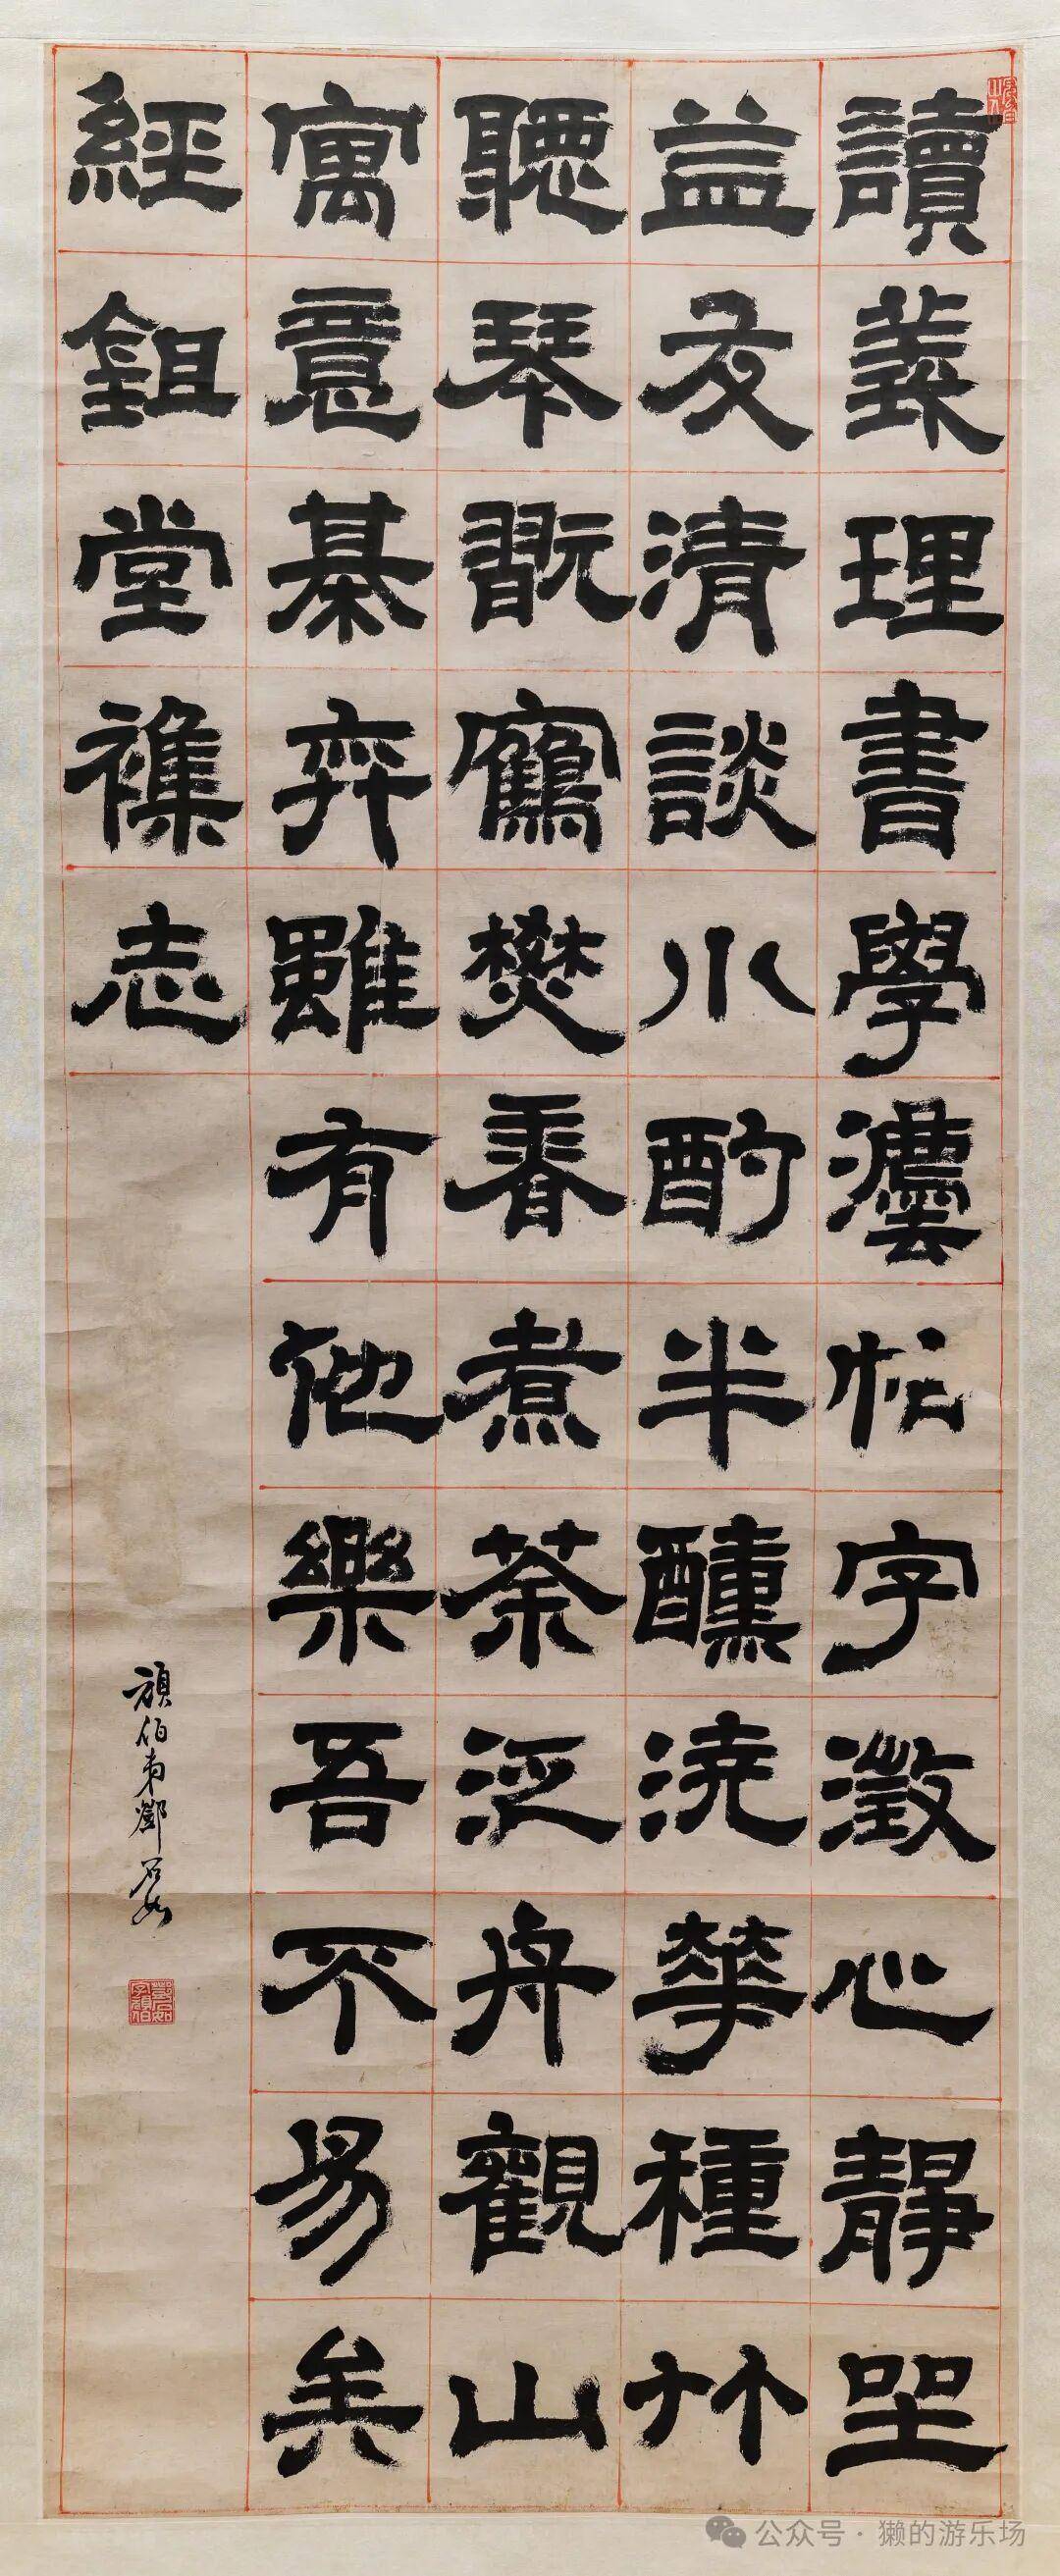 讀義理書學灋帖字澂心靜坐
益友清談小酌半醺澆華種竹
聽琴翫鶴焚香煮茶泛舟觀山
寓意棊弈雖有他樂吾不易矣
經鉏堂襍志
頑伯弟鄧石如
公众号·獭的游乐场